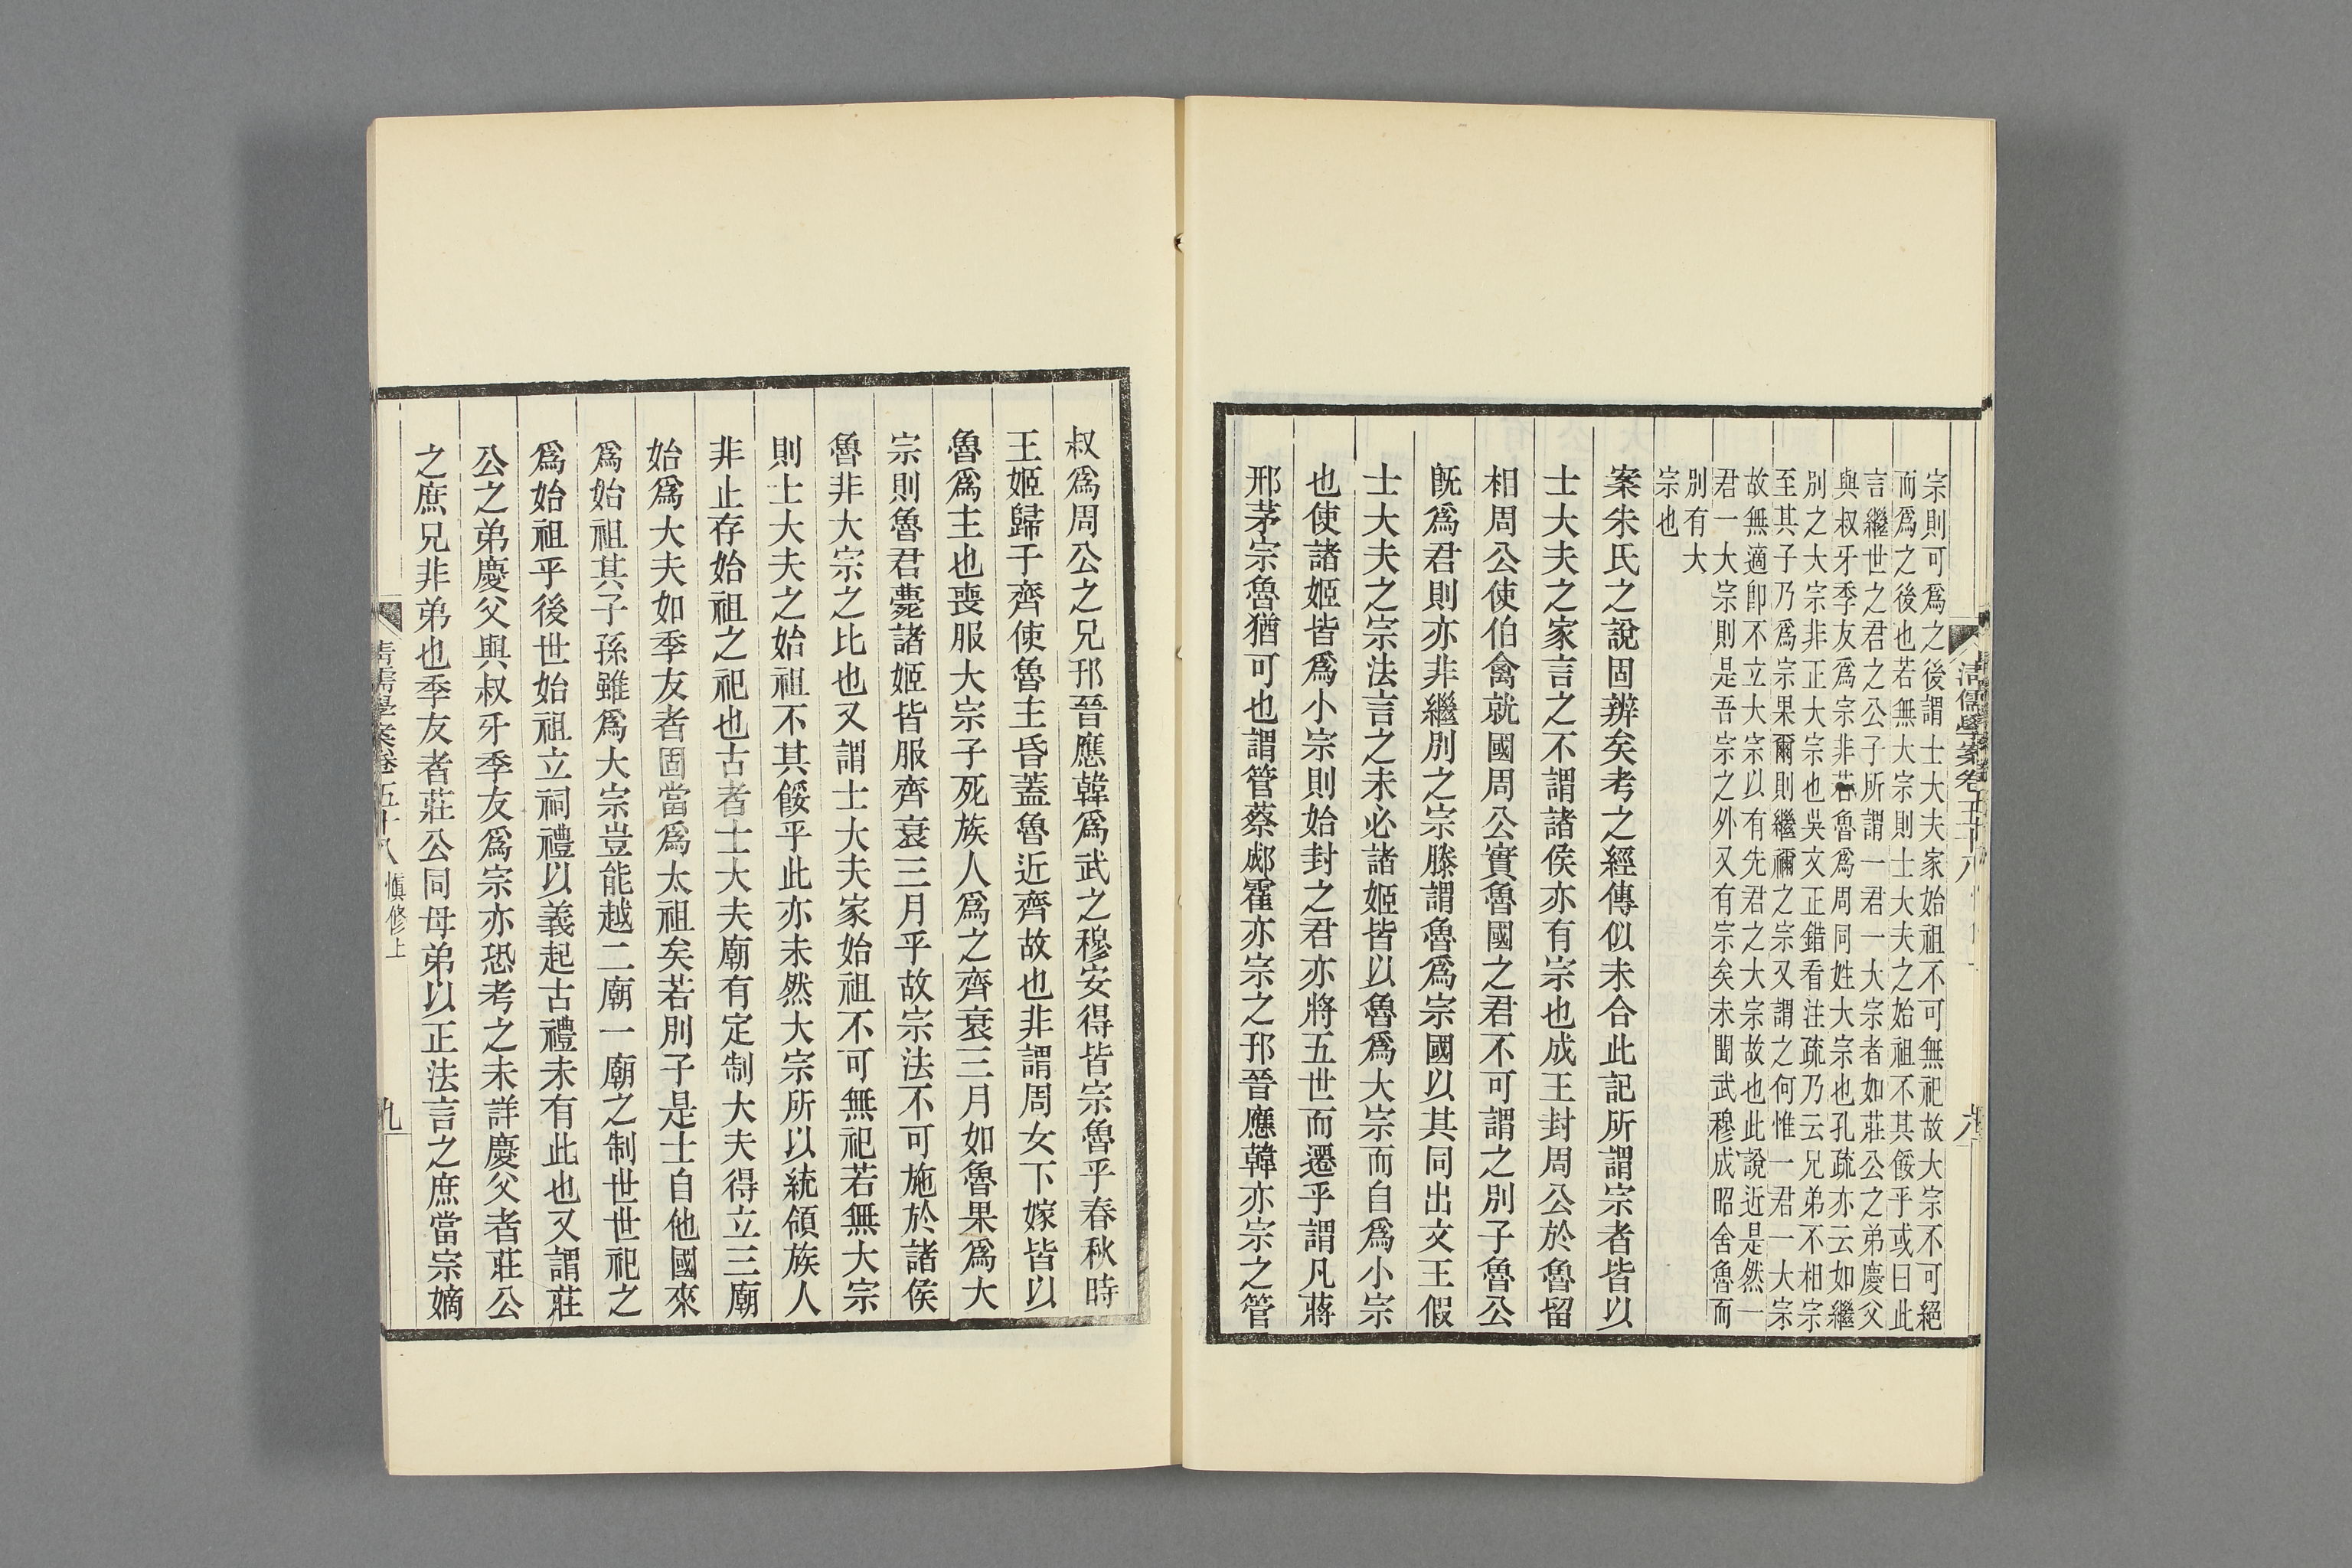 宗則可爲之後謂士大夫家始祖不可無祀故大宗不可絕
而爲之後也若無大宗則士大夫之始祖不其餒乎或曰此
言繼世之君之公子所謂一君一大宗者如莊公之弟慶父
與叔牙季友爲宗非若魯爲周同姓大宗也孔疏亦云如繼
別之大宗非正大宗也吳文正錯看注疏乃云兄弟不相宗
至其子乃爲宗果爾則繼禰之宗又謂之何惟一君一大宗
故無適卽不立大宗以有先君之大宗故也此說近是然一
君一大宗則是吾宗之外又有宗矣未聞武穆成昭舍魯而
別有大
宗也
案朱氏之說固辨矣考之經傳似未合此記所謂宗者皆以
士大夫之家言之不謂諸侯亦有宗也成王封周公於魯留
相周公使伯禽就國周公實魯國之君不可謂之別子魯公
旣爲君則亦非繼別之宗滕謂魯爲宗國以其同出文王假
士大夫之宗法言之未必諸姬皆以魯爲大宗而自爲小宗
也使諸姬皆爲小宗則始封之君亦將五世而遷乎謂凡蔣
邢茅宗魯猶可也謂管蔡郕霍亦宗之邘晉應韓亦宗之管
清儒學案卷五十八
八
叔爲周公之兄邘晉應韓爲武之穆安得皆宗魯乎春秋時
王姬歸于齊使魯主昏蓋魯近齊故也非謂周女下嫁皆以
魯爲主也喪服大宗子死族人爲之齊衰三月如魯果爲大
宗則魯君薨諸姬皆服齊衰三月乎故宗法不可施於諸侯
魯非大宗之比也又謂士大夫家始祖不可無祀若無大宗
則士大夫之始祖不其餒乎此亦未然大宗所以統領族人
非止存始祖之祀也古者士大夫廟有定制大夫得立三廟
始爲大夫如季友者固當爲太祖矣若別子是士自他國來
爲始祖其子孫雖爲大宗豈能越二廟一廟之制世世祀之
爲始祖乎後世始祖立祠禮以義起古禮未有此也又謂莊
公之弟慶父與叔牙季友爲宗亦恐考之未詳慶父者莊公
之庶兄非弟也季友者莊公同母弟以正法言之庶當宗嫡
清儒學案卷五十八 愼修上
九